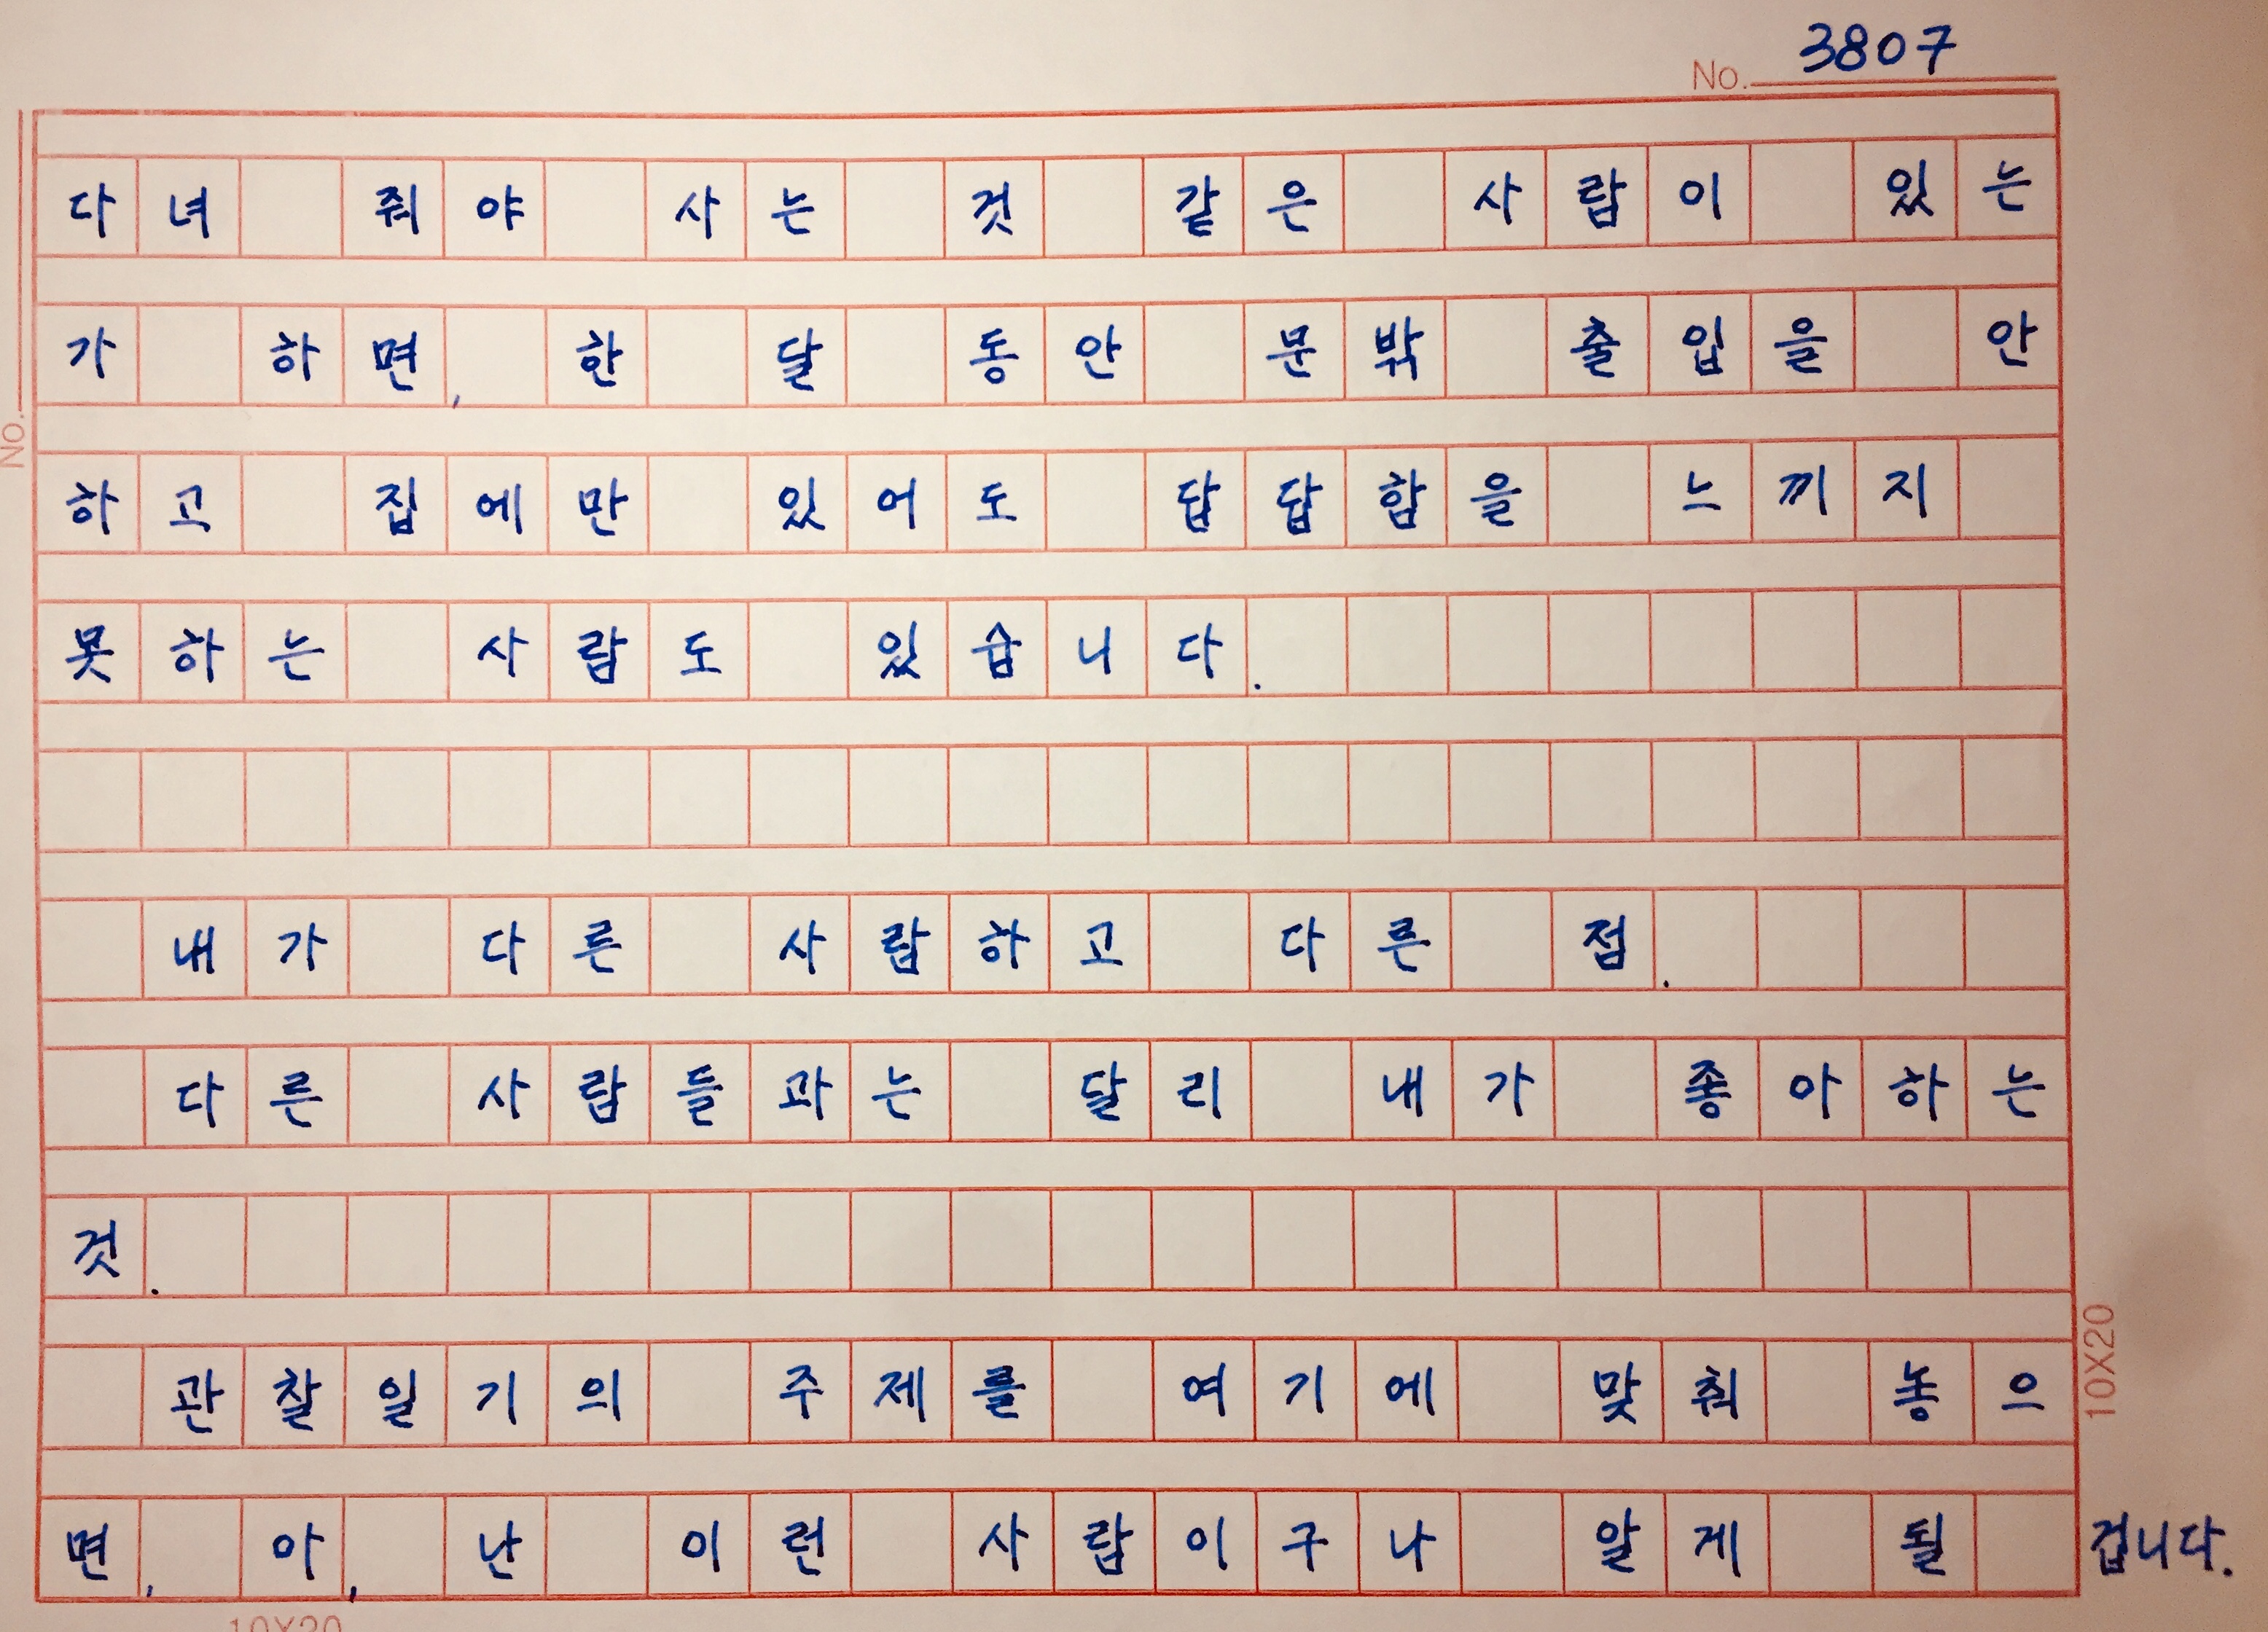 No. 3807
다녀 줘야 사는 것 같은 사람이 있는
가 하면, 한 달 동안 문밖 출입을 안
하고 집에만 있어도 답답함을 느끼지
못하는 사람도 있습니다.
내가 다른 사람하고 다른 점.
다른 사람들과는 달리 내가 좋아하는
것.
관찰일기의 주제를 여기에 맞춰 놓으
면, 아, 난 이런 사람이구나 알게 될 겁니다.
No.
10X20
10X20